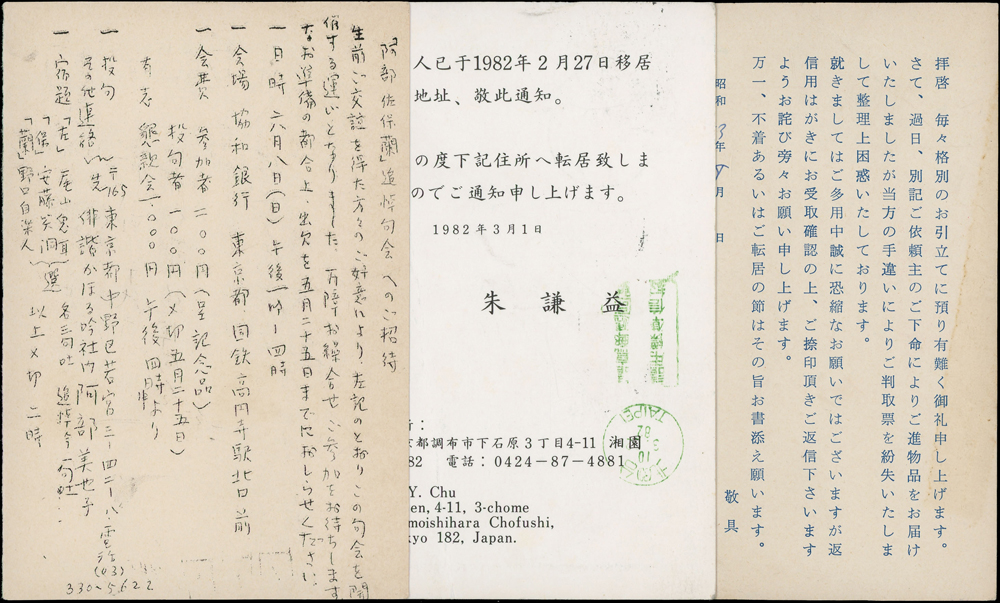 「阿部佐保蘭」追悼句会へのご招待
生前ご交誼を得た方々のご好意により、左記のとおりこの句会を開
催する運びとなりました、万障お繰合せご参加をお待ちします
なお準備の都合上、出欠を五月二十五日までにおしらせください、
一 日時 六月八日(日)午後一時〜四時
一 会場 協和銀行 東京都・国鉄高円寺駅北口前
一 会費 参加者 二〇〇円(呈記念品)
投句者 一〇〇円(〆切五月二十五日)
有志懇歓会 一〇〇〇円 午後四時より
一 投句
その他連絡 先
〒165 東京都中野区若宮三ー四二ー八 電話
(03)
330-5622
俳諧かほる吟社内 阿部美也子
一 宿題「左」
「保」安藤 選 各三句吐 追悼吟一句吐
「蘭」野口白 人 以上〆切 二時
人已于1982年2月27日移居
地址、敬此通知。
の度下記住所へ転居致しま
のでご通知申し上げます。
1982年3月1日
朱 謙 益
所:
京都調布市下石原3丁目4-11 湘園
82 電話:0424-87-4881
Y. Chu
en, 4-11, 3-chome
moishihara Chofushi,
kyo 182, Japan.
TAIPEI
10
3
82
拝啓 毎々格別のお引立てに預り有難く御礼申し上げます。
さて、過日、別記ご依頼主のご下命によりご進物品をお届け
いたしましたが当方の手違いによりご判取票を紛失いたしま
して整理上困惑いたしております。
就きましてはご多用中誠に恐縮なお願いではございますが返
信用はがきにお受取確認の上、ご捺印頂きご返信下さいます
ようお詫び旁々お願い申し上げます。
万一、不着あるいはご転居の節はその旨お書添え願います。
敬具
昭和 年 月 日